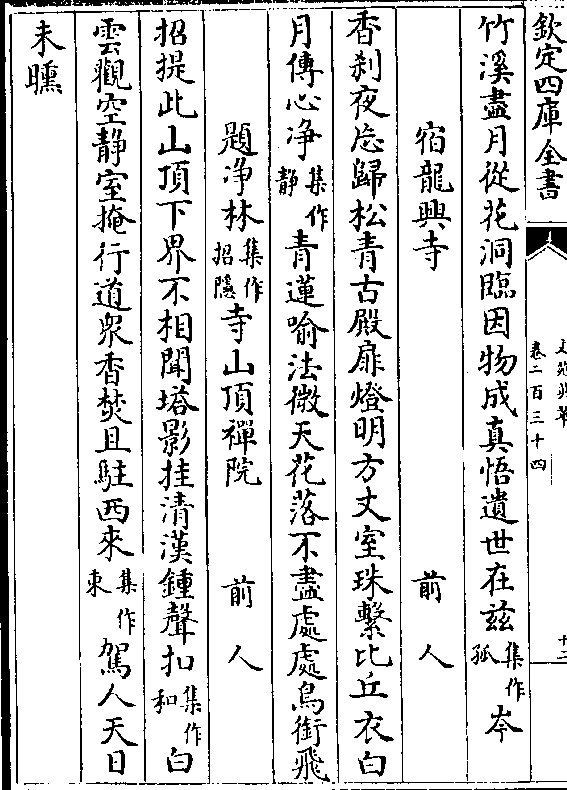 欽定四庫全書
文苑英華
卷二百三十四
十二
竹溪盡月從花洞臨因物成真悟遺世在兹集作孤岑
宿龍興寺 前人
香刹夜忘歸松青古殿扉燈明方丈室珠繫比丘衣白
月傳心浄集作靜青蓮喻法微天花落不盡處處鳥銜飛
題浄林集作招隱寺山頂禪院 前人
招提此山頂下界不相聞塔影挂清漢鍾聲扣集作和白
雲觀空静室掩行道衆香焚且駐西來集作東駕人天日
未曛